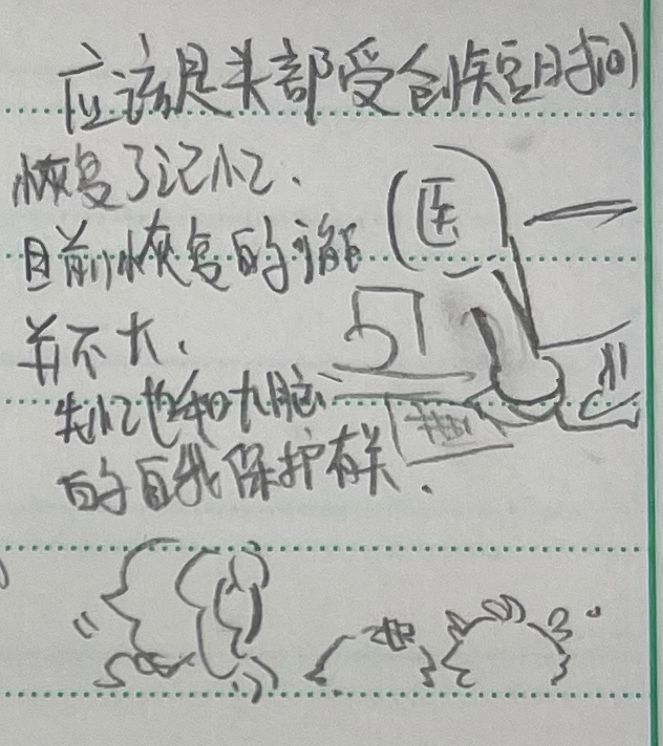 应该是头部受创后短时间
恢复了记忆.
目前恢复的可能
并不大.
失忆也和大脑
的自我保护有关.
医